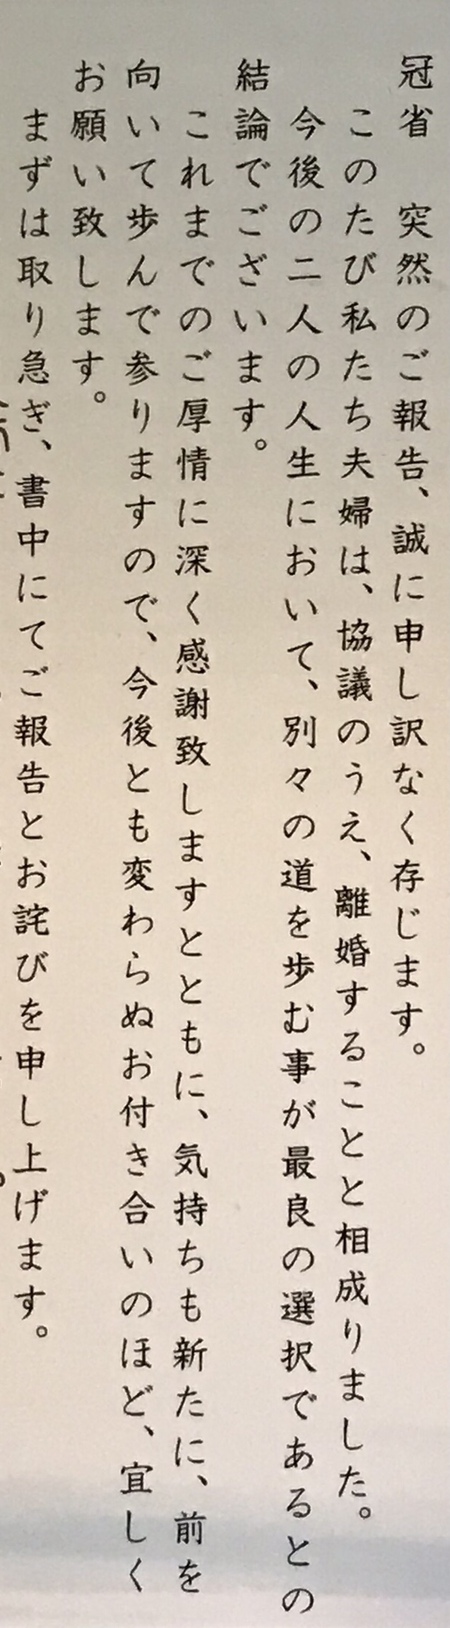 冠省　突然のご報告、誠に申し訳なく存じます。
このたび私たち夫婦は、協議のうえ、離婚することと相成りました。
今後の二人の人生において、別々の道を歩む事が最良の選択であるとの
結論でございます。
これまでのご厚情に深く感謝致しますとともに、気持ちも新たに、前を
向いて歩んで参りますので、今後とも変わらぬお付き合いのほど、宜しく
お願い致します。
まずは取り急ぎ、書中にてご報告とお詫びを申し上げます。